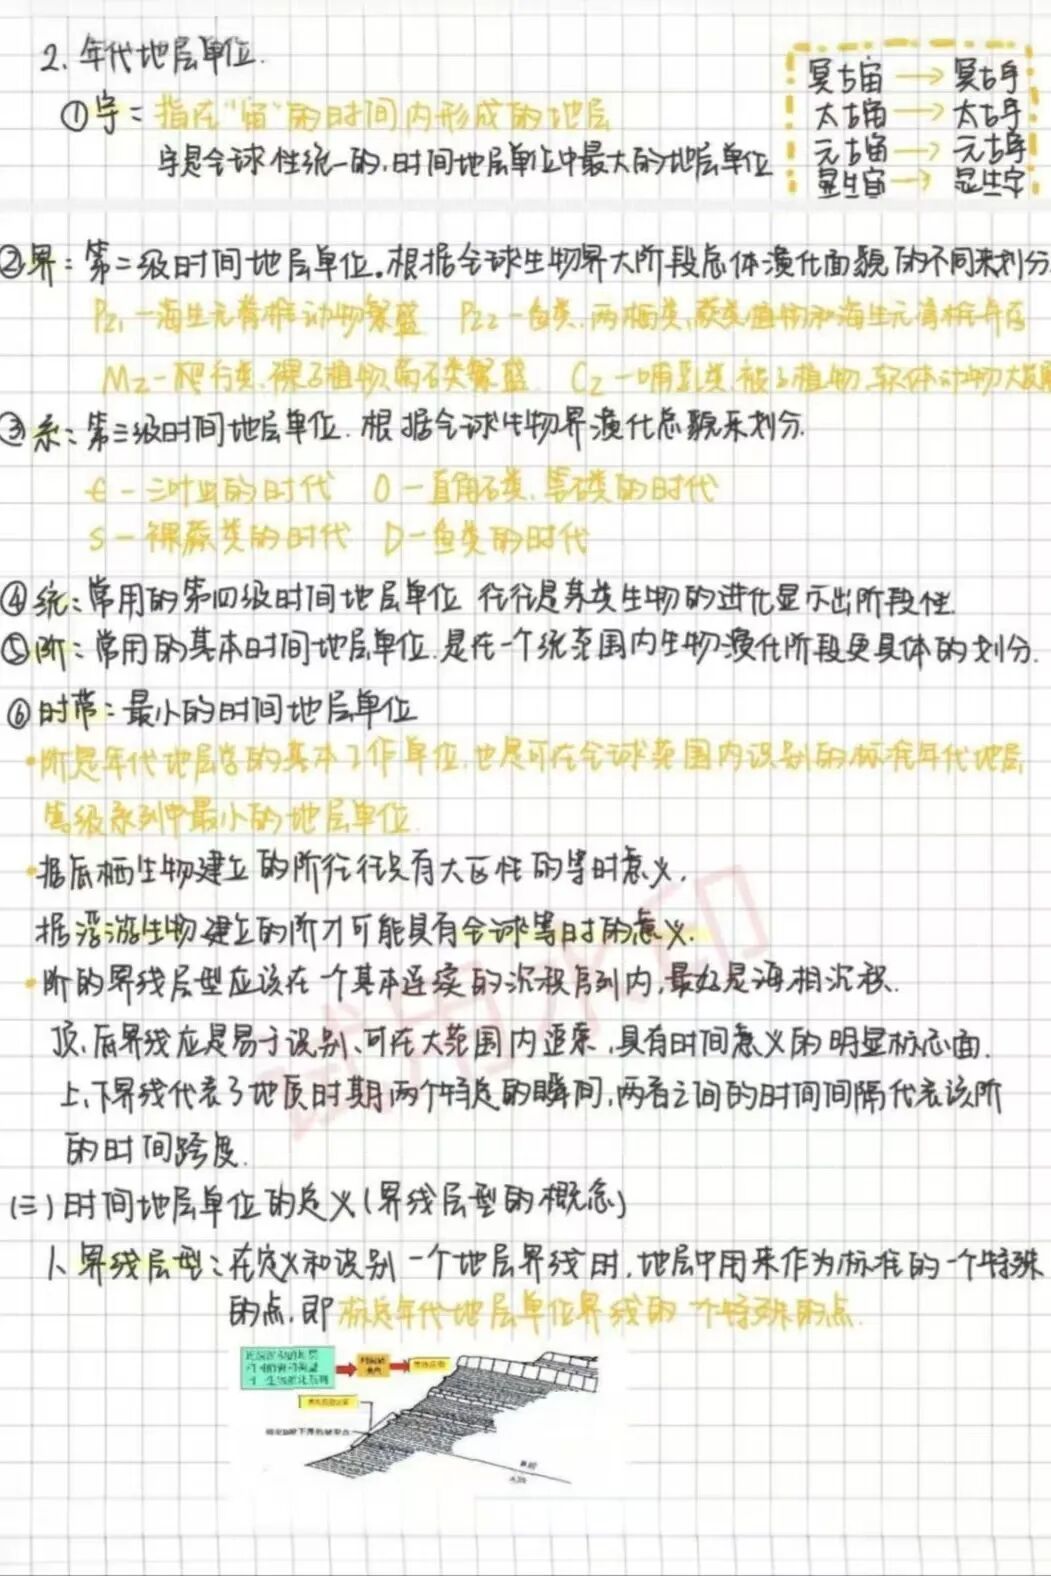 2. 年代地层单位.
冥古宙 → 冥古宇
太古宙 → 太古宇
元古宙 → 元古宇
显生宙 → 显生宇
①宇：指在"宙"的时间内形成的地层
宇是全球性统一的,时间地层单位中最大的地层单位
②界：第二级时间地层单位。根据全球生物界大阶段总体演化面貌的不同来划分
Pz₁—海生无脊椎动物繁盛 Pz₂—鱼类、两栖类、蕨类植物和海生无脊椎
Mz—爬行类、裸子植物、菊石类繁盛. Cz—哺乳类、被子植物、软体动物大发展
③系：第三级时间地层单位. 根据全球生物界演化总貌来划分.
Є—三叶虫的时代 O—直角石类、笔石类的时代
S—裸蕨类的时代 D—鱼类的时代
④统：常用的第四级时间地层单位 往往是某类生物的进化显示出阶段性.
⑤阶：常用的基本时间地层单位.是在一个统范围内生物演化阶段更具体的划分.
⑥时带：最小的时间地层单位
•阶是年代地层学的基本工作单位,也是可在全球范围内识别的标准年代地层
等级系列中最小的地层单位.
•据底栖生物建立的阶往往只有大区性的等时意义.
据浮游生物建立的阶才可能具有全球等时的意义.
•阶的界线层型应该在一个基本连续的沉积序列内,最好是海相沉积.
顶、底界线应是易于识别、可在大范围内追索,具有时间意义的明显标志面.
上、下界线代表了地质时期两个特定的瞬间,两者之间的时间间隔代表该阶
的时间跨度.
(三)时间地层单位的定义(界线层型的概念)
1、界线层型：在定义和识别一个地层界线时,地层中用来作为标准的一个特殊
的点,即标定年代地层单位界线的一个特殊的点.
试用水印